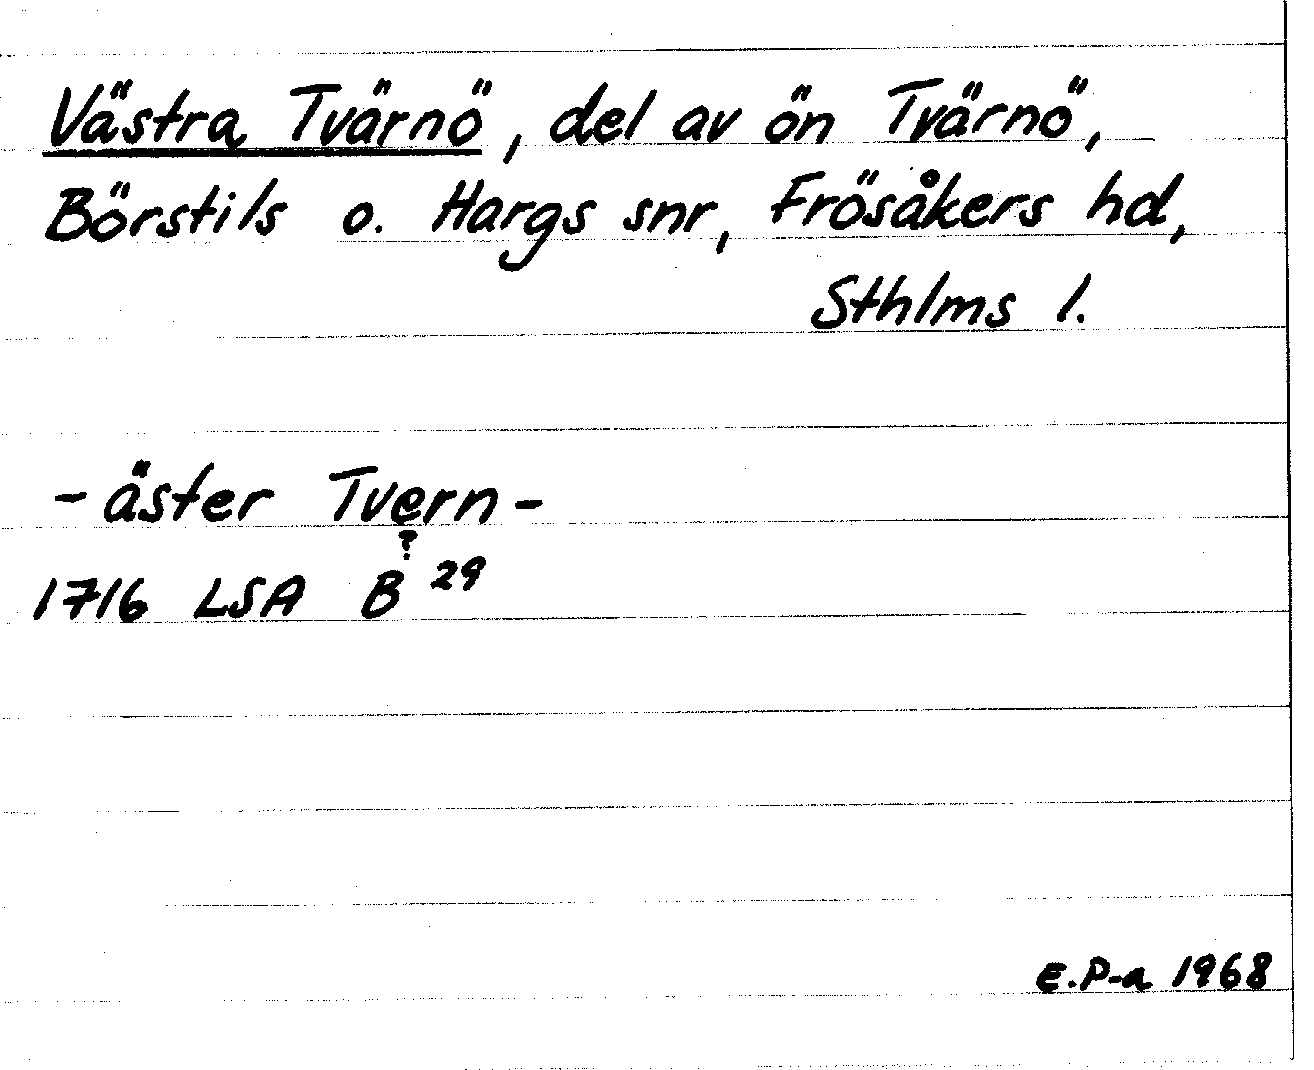 Västra Tvärnö, del av ön Tvärnö,
Börstils o. Hargs snr, Frösåkers hd,
Sthlms l.
- äster Tvern -
?
1716 LSA B 29
E.P-a 1968